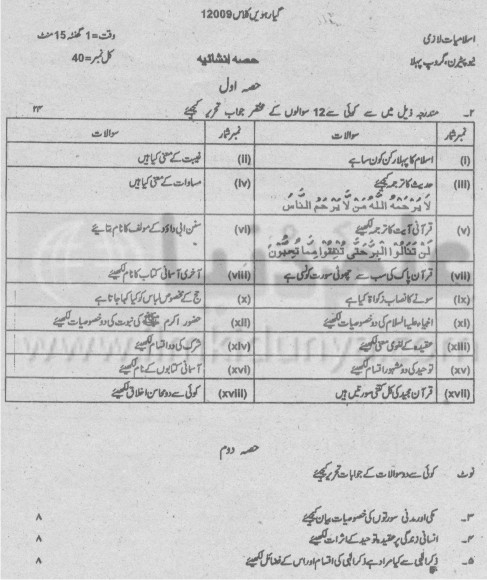 گیارہویں کلاس 12009
اسلامیات لازمی
وقت=1 گھنٹہ 15 منٹ
نیو پیٹرن، گروپ پہلا
حصہ انشائیہ
کل نمبر=40
حصہ اول
۲۔ مندرجہ ذیل میں سے کوئی سے 12 سوالوں کے مختصر جواب تحریر کیجئے ۲۴
نمبر شمار سوالات نمبر شمار سوالات
(i) اسلام کا پہلا رکن کون سا ہے (ii) غیبت کے معنی کیا ہیں
(iii) حدیث کا ترجمہ کیجئے (iv) مساوات کے معنی کیا ہیں
لَا يَرْحَمُهُ اللّٰهُ مَنْ لَّا يَرْحَمُ النَّاسَ
(v) قرآنی آیت کا ترجمہ لکھیئے (vi) سنن ابی داؤد کے مولف کا نام بتایئے
لَنْ تَنَالُوا الْبِرَّ حَتّٰى تُنْفِقُوْا مِمَّا تُحِبُّوْنَ
(vii) قرآن پاک کی سب سے چھوٹی سورت کونسی ہے (viii) آخری آسمانی کتاب کا نام لکھیئے
(ix) سونے کا نصاب زکواۃ کیا ہے (x) حج کے مخصوص لباس کو کیا کہا جاتا ہے
(xi) انبیاء علیہ السلام کی دو خصوصیات لکھیئے (xii) حضور اکرم ﷺ کی نبوت کی دو خصوصیات لکھیئے
(xiii) عقیدہ کے لغوی معنی لکھیئے (xiv) شرک کی دو اقسام لکھیئے
(xv) توحید کی دو مشہور اقسام لکھیئے (xvi) آسمانی کتابوں کے نام لکھیئے
(xvii) قرآن مجید کی کل کتنی سورتیں ہیں (xviii) کوئی سے دو محاسن اخلاق لکھیئے
حصہ دوم
نوٹ کوئی سے دو سوالات کے جوابات تحریر کیجئے
۳۔ مکی اور مدنی سورتوں کی خصوصیات بیان کیجئے ۸
۴۔ انسانی زندگی پر عقیدہ توحید کے اثرات لکھیئے ۸
۵۔ ذکر الٰہی سے کیا مراد ہے ذکر الٰہی کی اقسام اور اس کے فضائل لکھیئے ۸